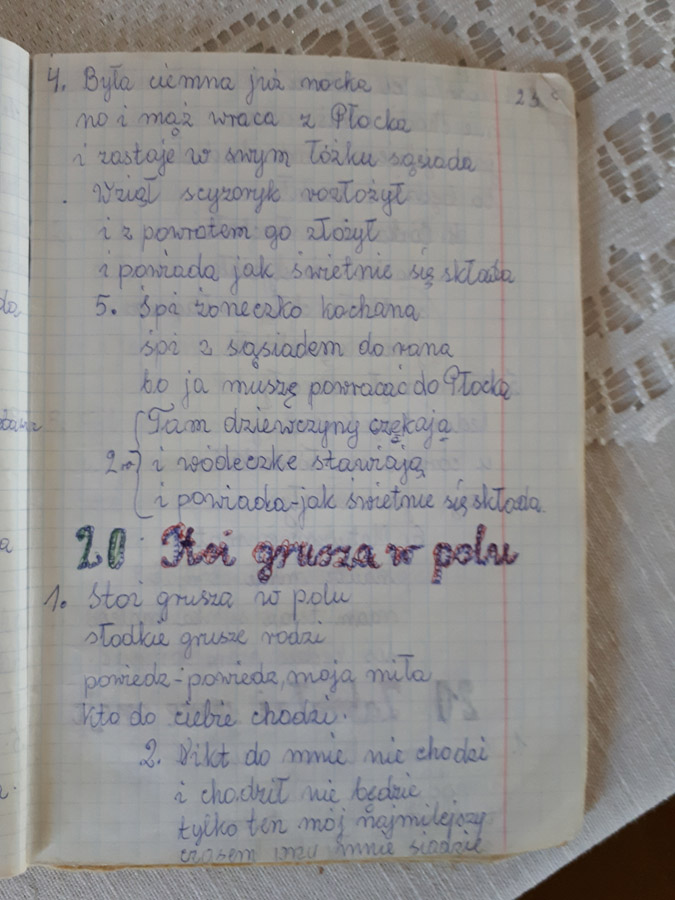 23
4. Była ciemna już nocka
no i mąż wraca z Płocka
i zastaje w swym łóżku sąsiada
Wziął scyzoryk rozłożył
i z powrotem go złożył
i powiada jak świetnie się składa
5. Śpi żoneczko kochana
śpi z sąsiadem do rana
bo ja muszę powracać do Płocka
Tam dziewczyny czekają
2x i wódeczke stawiają
i powiada-jak świetnie się składa
20 Stoi grusza w polu
1. Stoi grusza w polu
słodkie grusze rodzi
powiedz-powiedz, moja miła
Kto do ciebie chodzi.
2. Nikt do mnie nie chodzi
i chodził nie będzie
tylko ten mój najmilejszy
czasem przy mnie siądzie